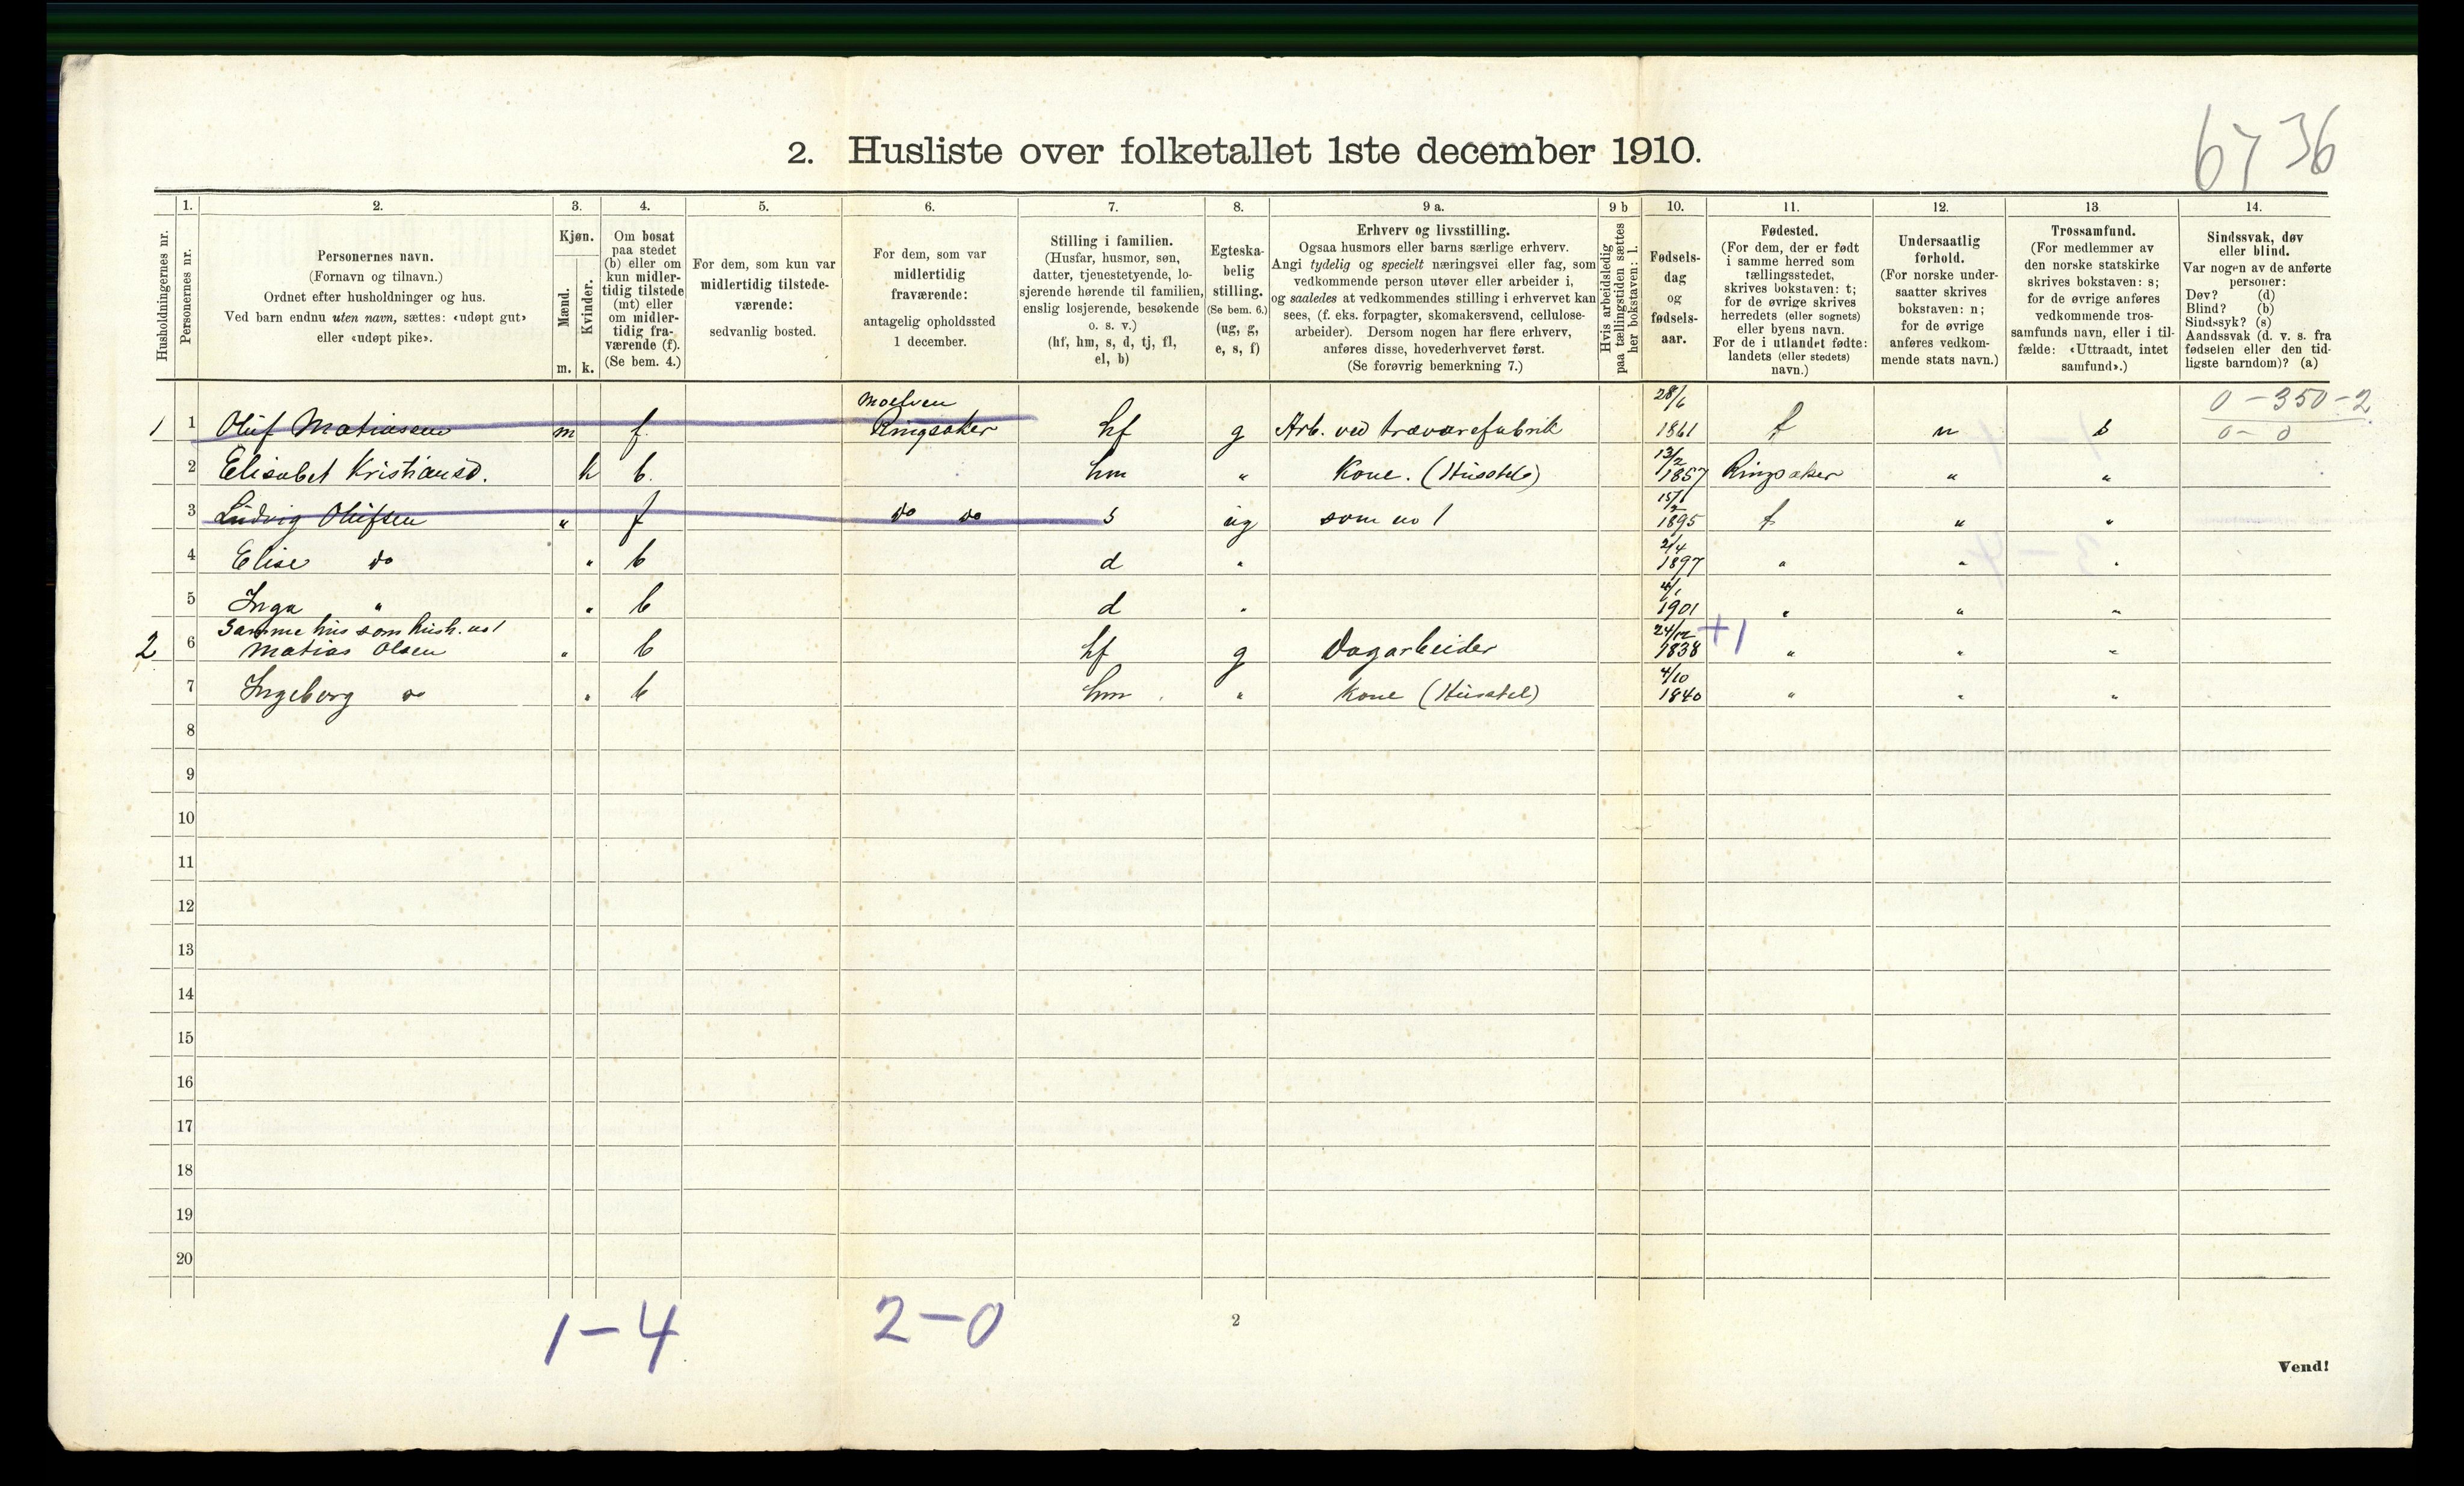 67 36
2. Husliste over folketallet 1ste december 1910.
Husholdningernes nr.
1.
Personernes nr.
2.
Personernes navn.
(Fornavn og tilnavn.)
Ordnet efter husholdninger og hus.
Ved barn endnu uten navn, sættes: «udøpt gut»
eller «udøpt pike».
3.
Kjøn.
Mænd.
Kvinder.
m. k.
4.
Om bosat
paa stedet
(b) eller om
kun midler-
tidig tilstede
(mt) eller
om midler-
tidig fra-
værende (f).
(Se bem. 4.)
5.
For dem, som kun var
midlertidig tilstede-
værende:
sedvanlig bosted.
6.
For dem, som var
midlertidig
fraværende:
antagelig opholdssted
1 december.
7.
Stilling i familien.
(Husfar, husmor, søn,
datter, tjenestetyende, lo-
sjerende hørende til familien,
enslig losjerende, besøkende
o. s. v.)
(hf, hm, s, d, tj, fl,
el, b)
8.
Egteska-
belig
stilling.
(Se bem. 6.)
(ug, g,
e, s, f)
9 a.
Erhverv og livsstilling.
Ogsaa husmors eller barns særlige erhverv.
Angi tydelig og specielt næringsvei eller fag, som
vedkommende person utøver eller arbeider i,
og saaledes at vedkommendes stilling i erhvervet kan
sees, (f. eks. forpagter, skomakersvend, cellulose-
arbeider). Dersom nogen har flere erhverv,
anføres disse, hovederhvervet først.
(Se forøvrig bemerkning 7.)
9 b
Hvis arbeidsledig
paa tællingstiden sættes
her bokstaven: l.
10.
Fødsels-
dag
og
fødsels-
aar.
11.
Fødested.
(For dem, der er født
i samme herred som
tællingsstedet,
skrives bokstaven: t;
for de øvrige skrives
herredets (eller sognets)
eller byens navn.
For de i utlandet fødte:
landets (eller stedets)
navn.)
12.
Undersaatlig
forhold.
(For norske under-
saatter skrives
bokstaven: n;
for de øvrige
anføres vedkom-
mende stats navn.)
13.
Trossamfund.
(For medlemmer av
den norske statskirke
skrives bokstaven: s;
for de øvrige anføres
vedkommende tros-
samfunds navn, eller i til-
fælde: «Uttraadt, intet
samfund».)
14.
Sindssvak, døv
eller blind.
Var nogen av de anførte
personer:
Døv? (d)
Blind? (b)
Sindssyk? (s)
Aandssvak (d. v. s. fra
fødselen eller den tid-
ligste barndom)? (a)
Moelven 28/6 0-350-2
1 1 Oluf Matiassen m f. Ringsaker hf g Arb. ved trævarefabrik 1861 t n s 0-0
2 Elisabet Kristiansd. k b. hm " Kone. (Husstel) 13/2 1857 Ringsaker " "
3 Ludvig Olufsen " f do do s ug som no 1 1895 t " "
4 Elise do " b d " 2/4 1897 " " "
5 Inga " " b d " 4/1 1901 " " "
Samme hus som hush. no 1
2 6 Matias Olsen " b hf g Dagarbeider 24/12 1838 +1 " " "
7 Ingeborg do " b hm " Kone (Husstel) 4/10 1840 " " "
8
9
10
11
12
13
14
15
16
17
18
19
20
1-4 2-0
2
Vend!